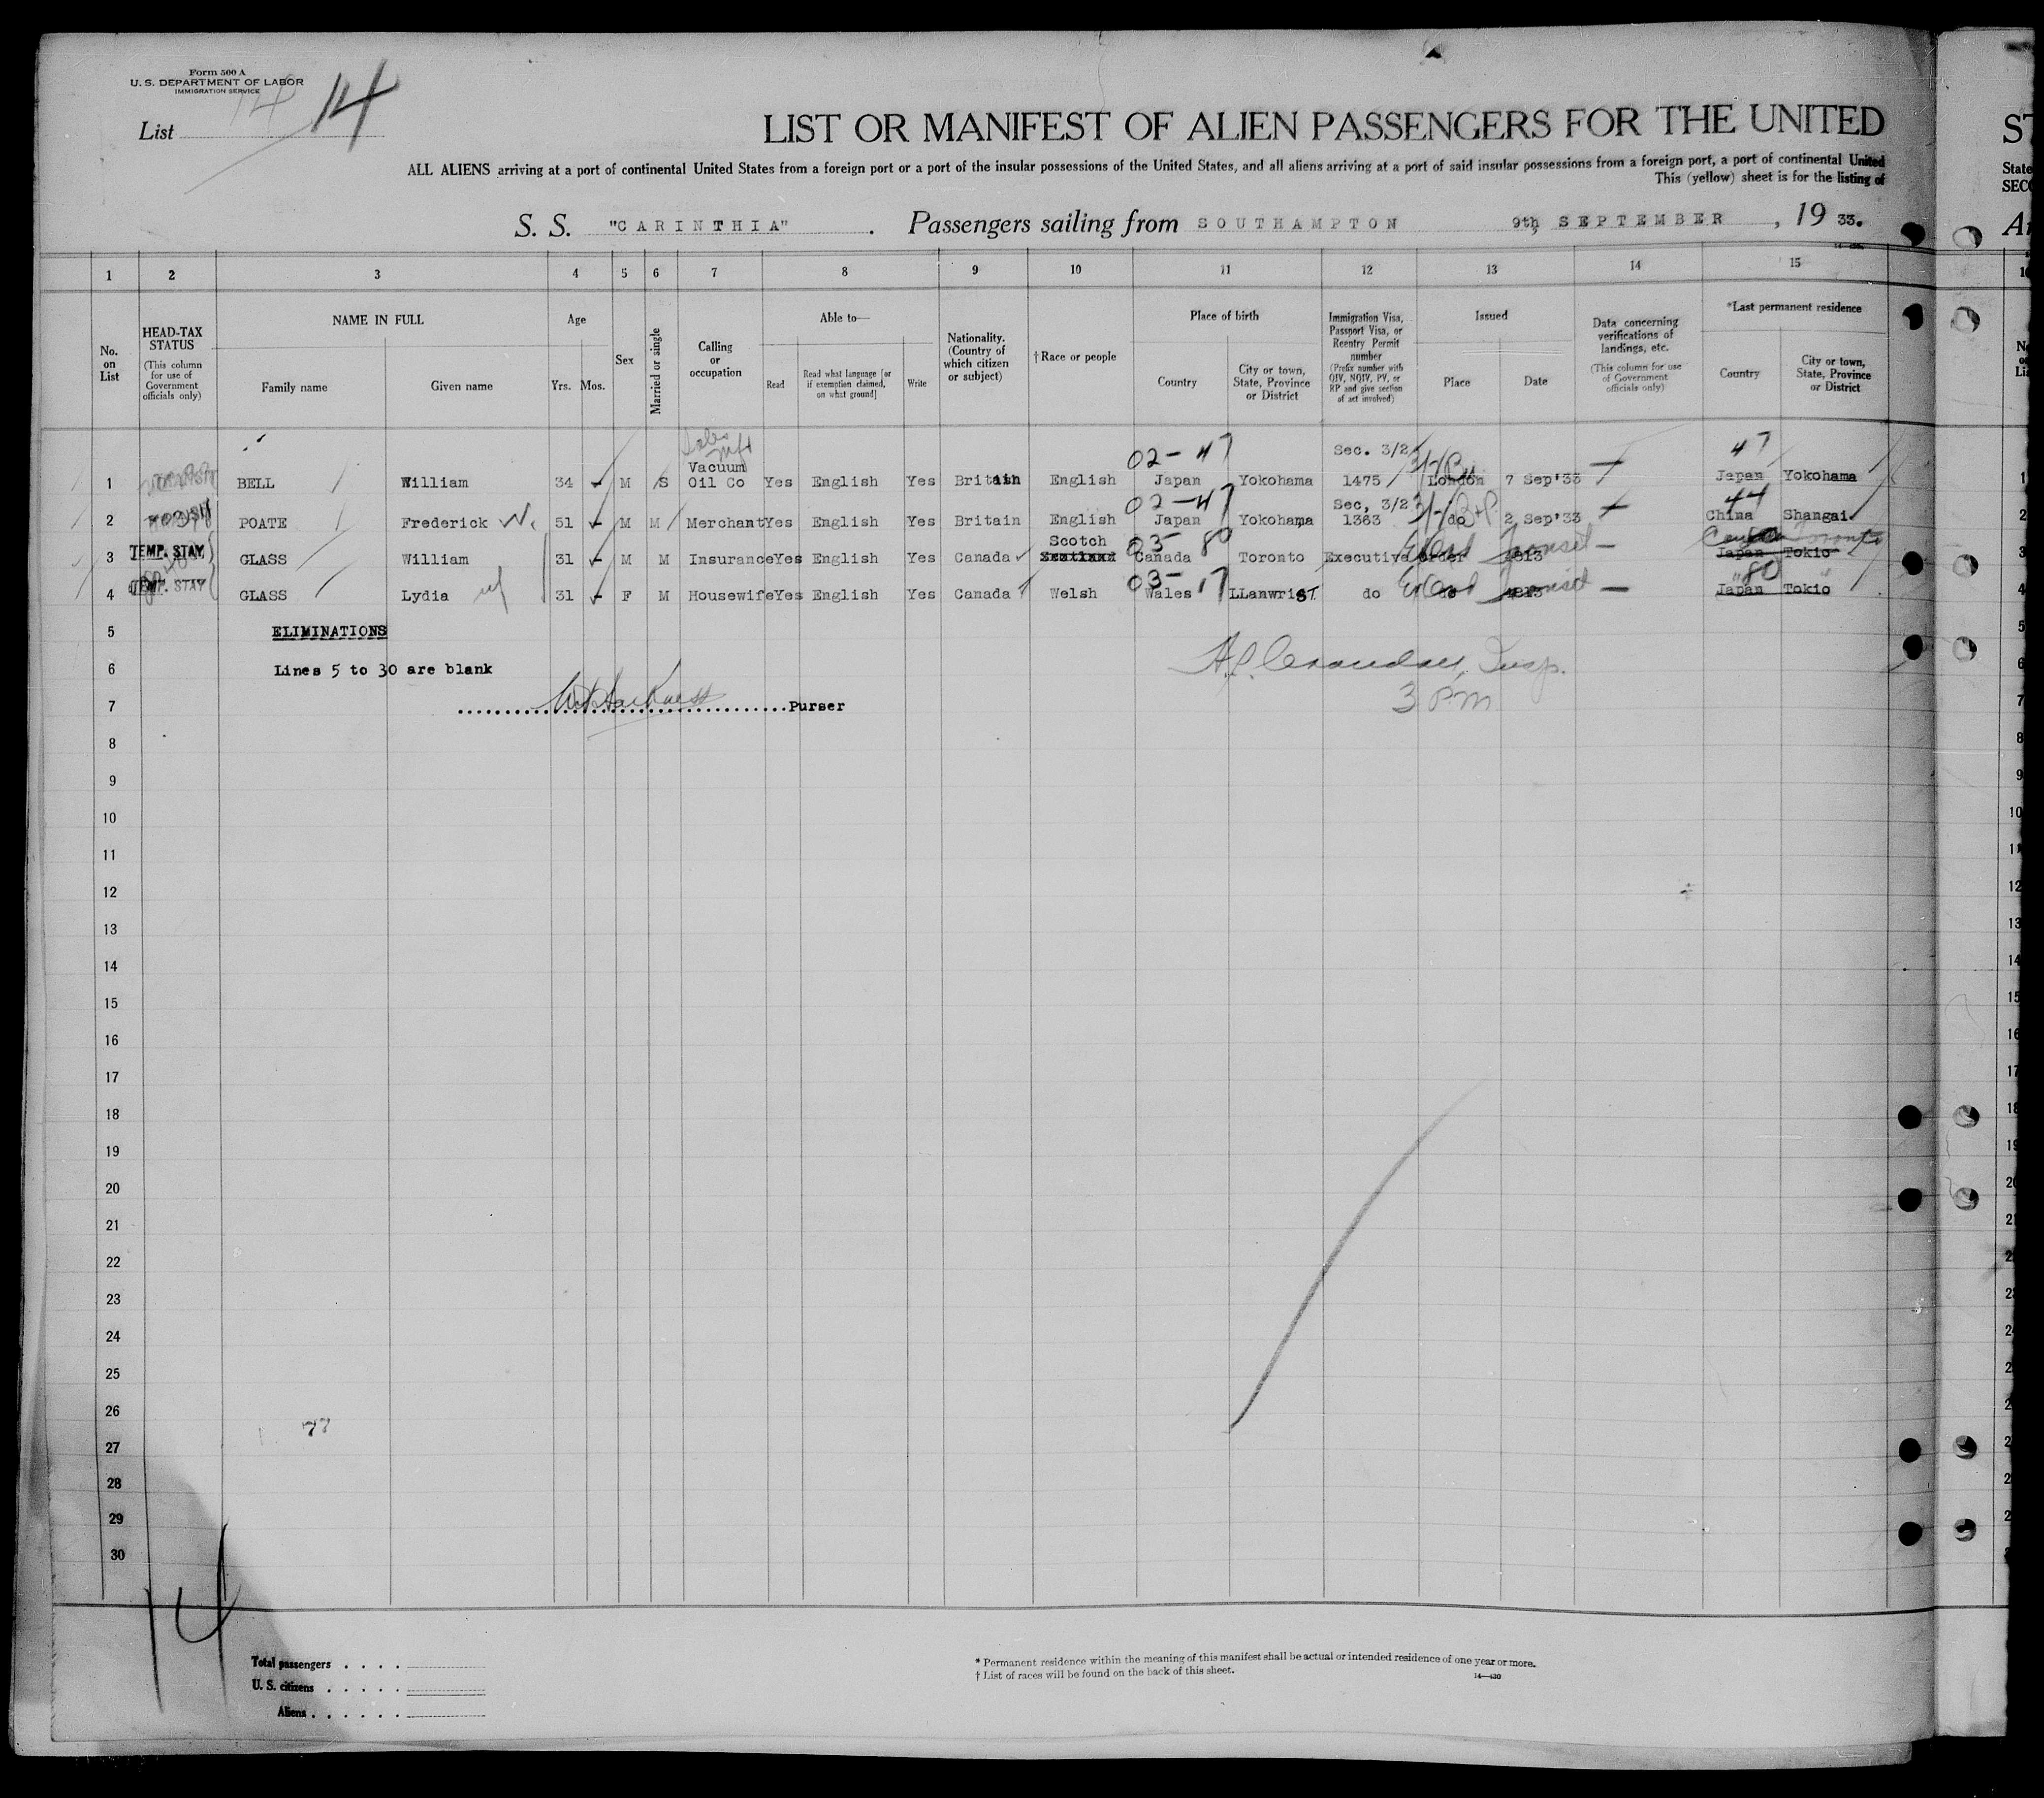 Form 500 A
U. S. DEPARTMENT OF LABOR
IMMIGRATION SERVICE
List 14 14
LIST OR MANIFEST OF ALIEN PASSENGERS FOR THE UNITED
ALL ALIENS arriving at a port of continental United States from a foreign port or a port of the insular possessions of the United States, and all aliens arriving at a port of said insular possessions from a foreign port, a port of continental United
This (yellow) sheet is for the listing of
S. S. "CARINTHIA" . Passengers sailing from SOUTHAMPTON 9th, SEPTEMBER , 19 33.
1 2 3 4 5 6 7 8 9 10 11 12 13 14 15
No. on List
HEAD-TAX STATUS (This column for use of Government officials only)
NAME IN FULL Family name Given name
Age Yrs. Mos.
Sex
Married or single
Calling or occupation
Able to— Read Read what language [or if exemption claimed, on what ground] Write
Nationality. (Country of which citizen or subject)
†Race or people
Place of birth Country City or town, State, Province or District
Immigration Visa, Passport Visa, or Reentry Permit number (Prefix number with QIV, NQIV, PV, or RP and give section of act involved)
Issued Place Date
Data concerning verifications of landings, etc. (This column for use of Government officials only)
*Last permanent residence Country City or town, State, Province or District
Sales
Vacuum 02-47 Sec. 3/2 47
1 BELL William 34 M S Oil Co Yes English Yes Britain English Japan Yokohama 1475 London 7 Sep'33 Japan Yokohama 1
02-47 Sec, 3/2 44
2 POATE Frederick W. 51 M M Merchant Yes English Yes Britain English Japan Yokohama 1363 do 2 Sep'33 China Shangai. 2
Scotch 03- 80 Canada Toronto
3 TEMP. STAY GLASS William 31 M M Insurance Yes English Yes Canada Scotland Canada Toronto Executive Order 4813 Japan Tokio 3
03-17 80
4 TEMP. STAY GLASS Lydia wf 31 F M Housewife Yes English Yes Canada Welsh Wales LLanwriST. do do 4813 Japan Tokio 4
5 ELIMINATIONS 5
6 Lines 5 to 30 are blank Insp. 6
7 Purser 3 PM 7
8 8
9 9
10 10
11 11
12 12
13 13
14 14
15 15
16 16
17 17
18 18
19 19
20
21
22
23
24
25
26
77
27
28
29
30
14
Total passengers . . . .
U. S. citizens . . . . .
Aliens . . . . . .
* Permanent residence within the meaning of this manifest shall be actual or intended residence of one year or more.
† List of races will be found on the back of this sheet.
14—430